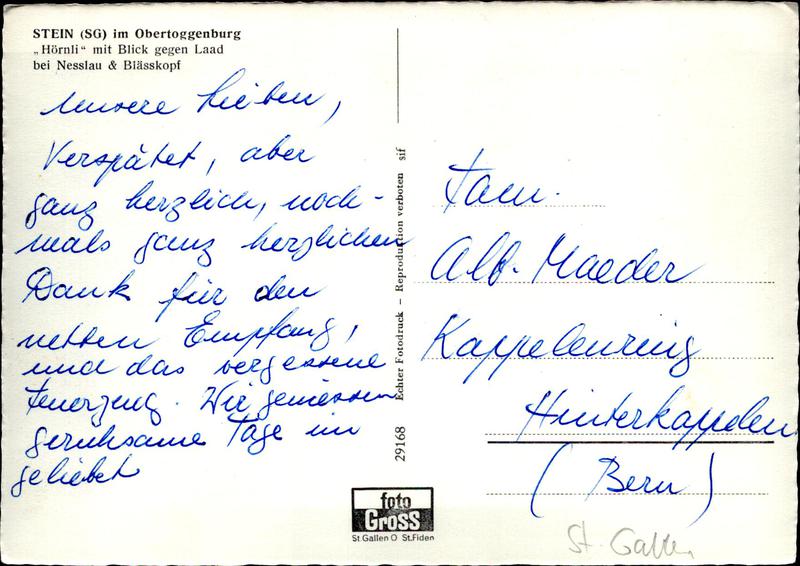 STEIN (SG) im Obertoggenburg
„Hörnli“ mit Blick gegen Laad
bei Nesslau & Blässkopf
Unsere Lieben,
Verspätet, aber
ganz herzlich, noch-
mals ganz herzlichen
Dank für den
netten Empfang,
und das vergessene
Feuerzeug. Wir geniessen
geruhsame Tage im
geliebet
Echter Fotodruck – Reproduktion verboten sif
29168
Fam.
Alb. Maeder
Kappelenring
Hinterkappelen
(Bern)
foto
Gross
St.Gallen O St.Fiden
St. Gallen